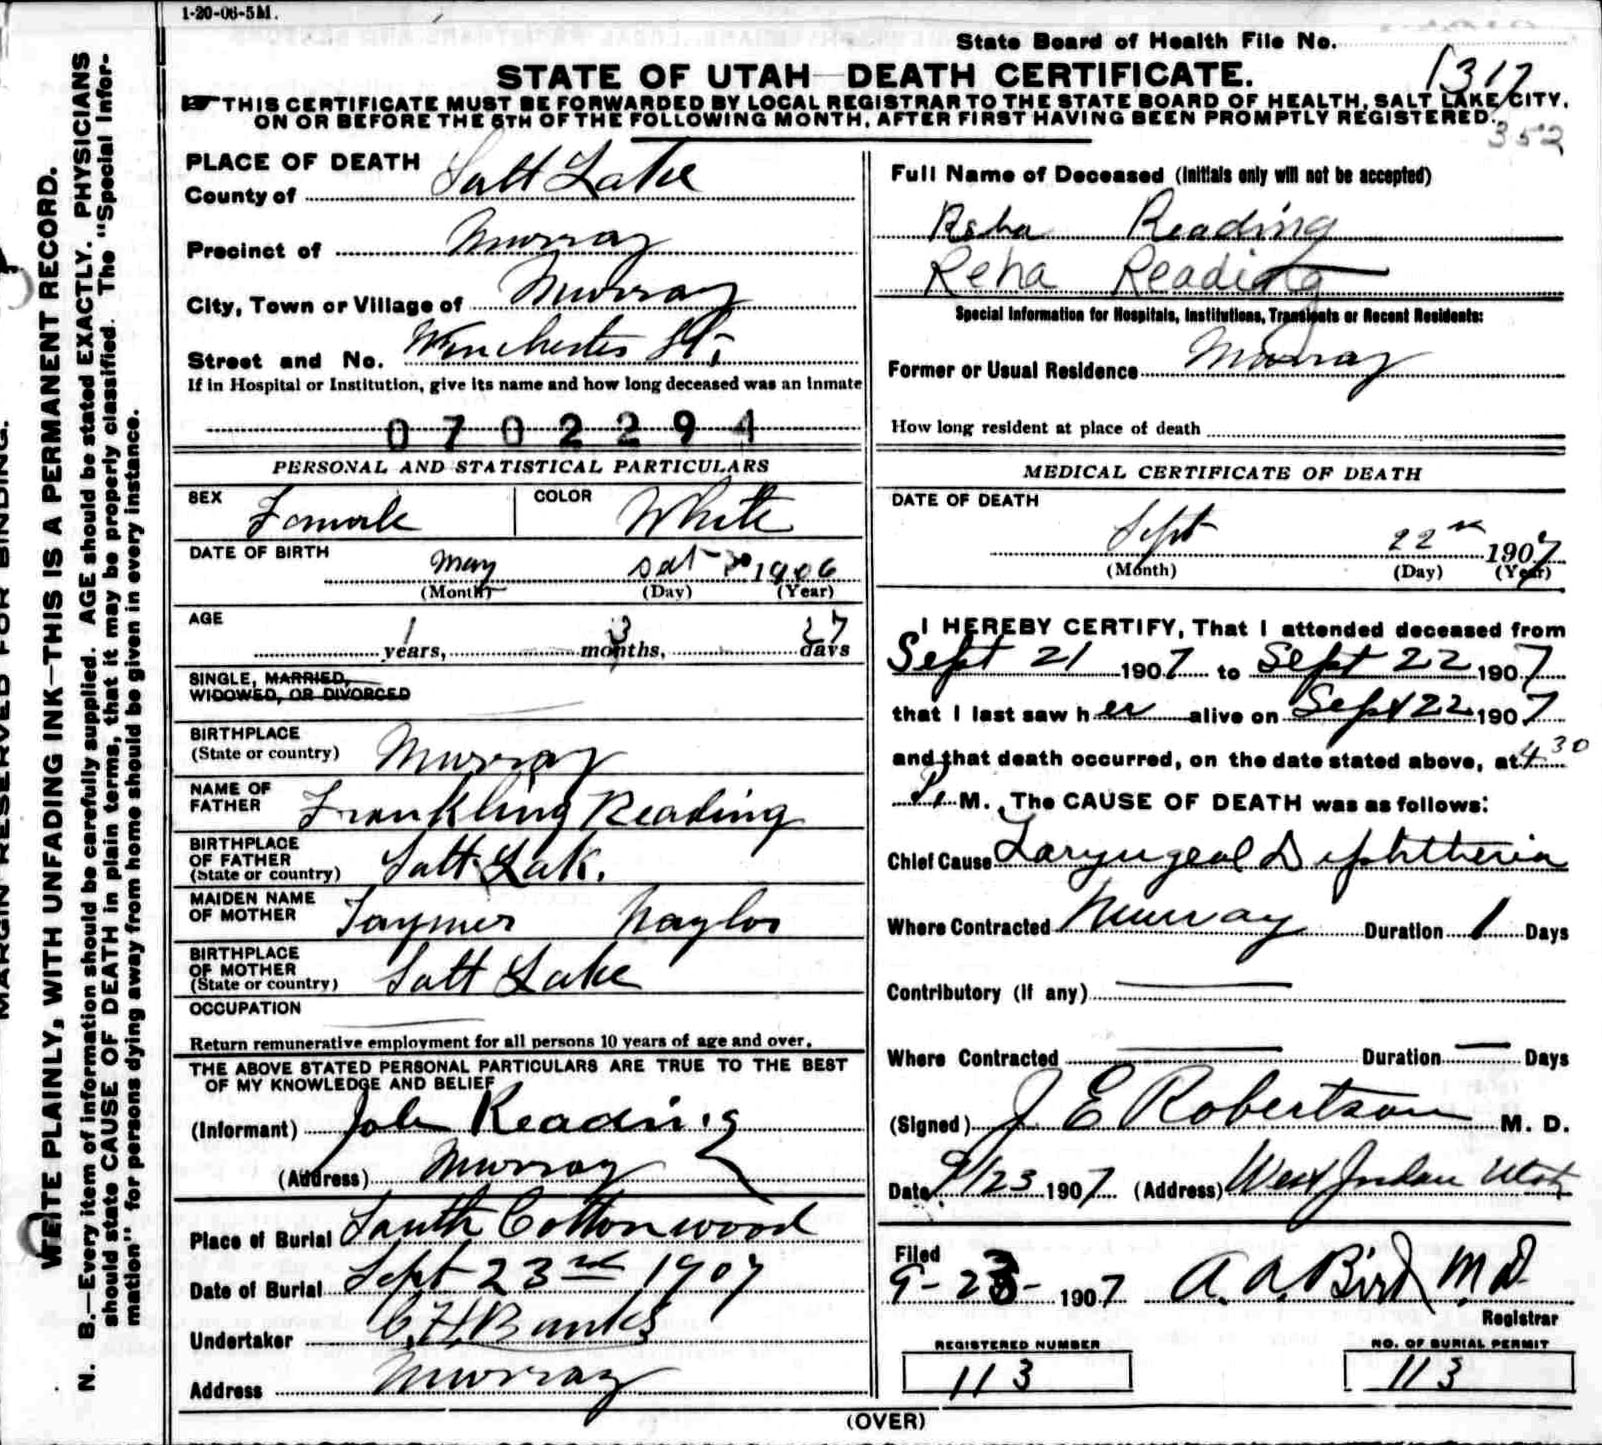 1-20-06-5M.
State Board of Health File No.
1317
STATE OF UTAH—DEATH CERTIFICATE.
THIS CERTIFICATE MUST BE FORWARDED BY LOCAL REGISTRAR TO THE STATE BOARD OF HEALTH, SALT LAKE CITY,
ON OR BEFORE THE 5TH OF THE FOLLOWING MONTH, AFTER FIRST HAVING BEEN PROMPTLY REGISTERED.
352
MARGIN RESERVED FOR BINDING.
WRITE PLAINLY, WITH UNFADING INK—THIS IS A PERMANENT RECORD.
N. B.—Every item of information should be carefully supplied. AGE should be stated EXACTLY. PHYSICIANS
should state CAUSE OF DEATH in plain terms, that it may be properly classified. The "Special Infor-
mation" for persons dying away from home should be given in every instance.
PLACE OF DEATH
County of Salt Lake
Precinct of Murray
City, Town or Village of Murray
Street and No. Winchester St.
If in Hospital or Institution, give its name and how long deceased was an inmate
0702294
PERSONAL AND STATISTICAL PARTICULARS
SEX Female COLOR White
DATE OF BIRTH
May 1906
(Month) (Day) (Year)
AGE
1 years, 3 months, 27 days
SINGLE, MARRIED,
WIDOWED, OR DIVORCED
BIRTHPLACE
(State or country) Murray
NAME OF
FATHER Frankling Reading
BIRTHPLACE
OF FATHER
(State or country) Salt Lak.
MAIDEN NAME
OF MOTHER Naylor
BIRTHPLACE
OF MOTHER
(State or country) Salt Lake
OCCUPATION
Return remunerative employment for all persons 10 years of age and over.
THE ABOVE STATED PERSONAL PARTICULARS ARE TRUE TO THE BEST
OF MY KNOWLEDGE AND BELIEF
(Informant) John Reading
(Address) Murray
Place of Burial South Cottonwood
Date of Burial Sept 23rd 1907
Undertaker Banks
Address Murray
Full Name of Deceased (Initials only will not be accepted)
Reha Reading
Reha Reading
Special Information for Hospitals, Institutions, Transients or Recent Residents:
Former or Usual Residence Murray
How long resident at place of death
MEDICAL CERTIFICATE OF DEATH
DATE OF DEATH
Sept 22 1907
(Month) (Day) (Year)
I HEREBY CERTIFY, That I attended deceased from
Sept 21 1907 to Sept 22 1907
that I last saw her alive on Sept 22 1907
and that death occurred, on the date stated above, at 4 30
P. M. The CAUSE OF DEATH was as follows:
Chief Cause Laryngeal Diphtheria
Where Contracted Murray Duration 1 Days
Contributory (if any)
Where Contracted Duration Days
(Signed) J E Robertson M. D.
Date 9/23 1907 (Address) West Jordan Utah
Filed
9-23- 1907 A. A. Bird M.D.
Registrar
REGISTERED NUMBER
113
NO. OF BURIAL PERMIT
113
(OVER)